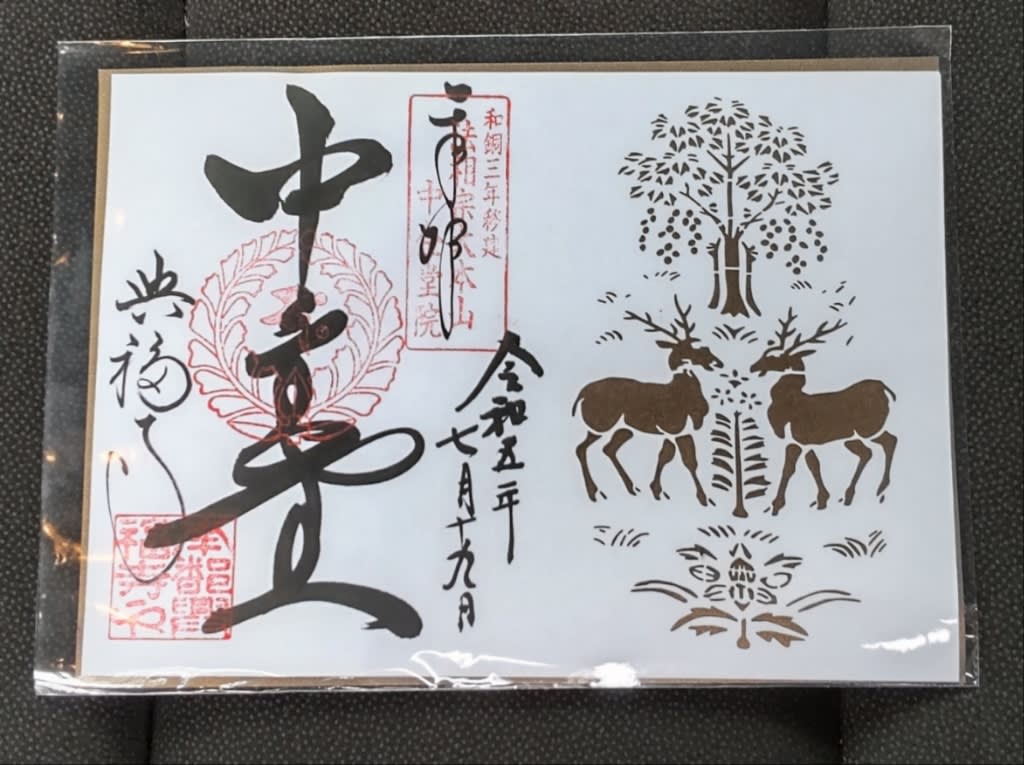 奉拝
和銅三年創建
法相宗大本山
中金堂院
令和五年
七月十九日
中金堂
興福寺
南都興
福寺印